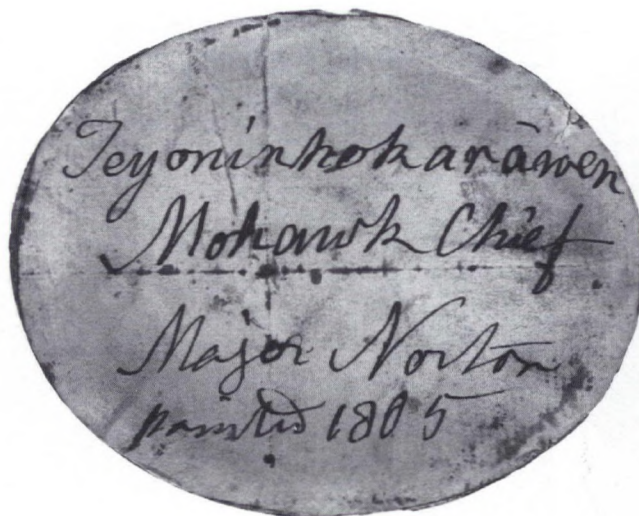 Teyoninhokarāwen
Mohawk Chief
Major Norton
painted 1805